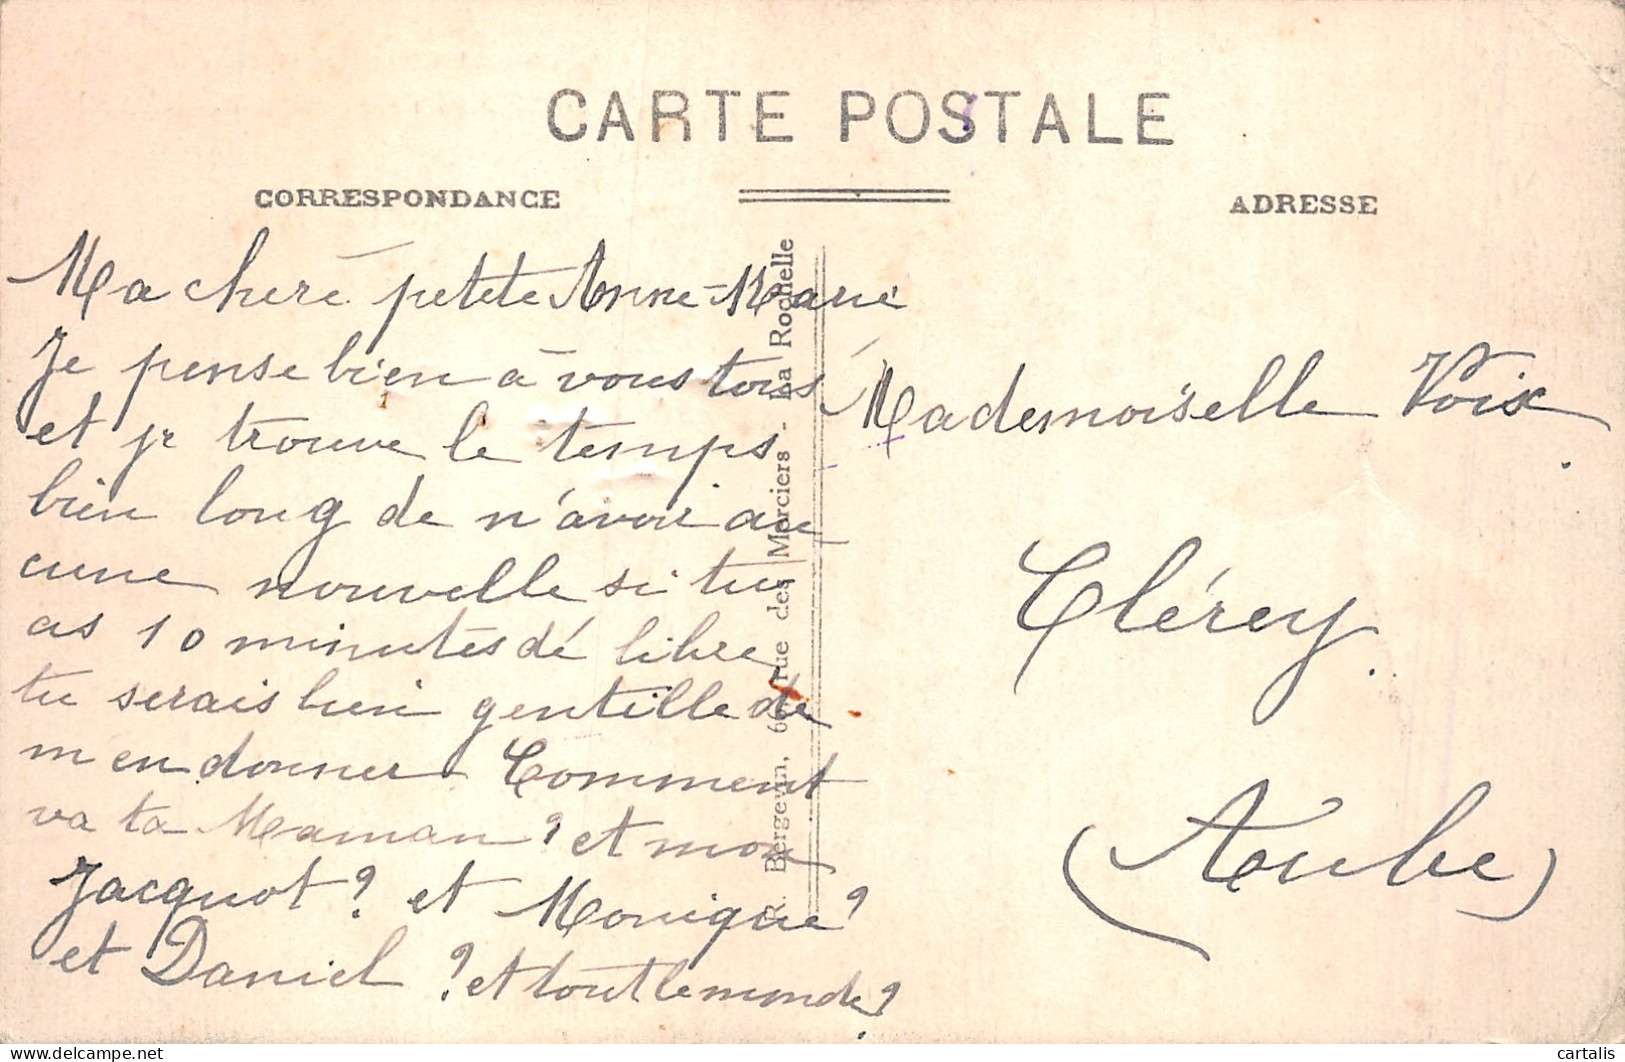 CARTE POSTALE
CORRESPONDANCE
ADRESSE
Ma cheré petite Anne-Marie
Je pense bien à vous tous
et je trouve le temps
bien long de n'avoir au
cune nouvelle si tu
as 10 minutes dé libre
tu serais bien gentille de
m en donner Comment
va ta Maman ? et mon
Jacquot ? et Monique ?
et Daniel ? et tout le monde ?
R. Bergevin, 66, rue des Merciers - La Rochelle
Mademoiselle Voix
Clérey.
(Aube)
delcampe.net
cartalis